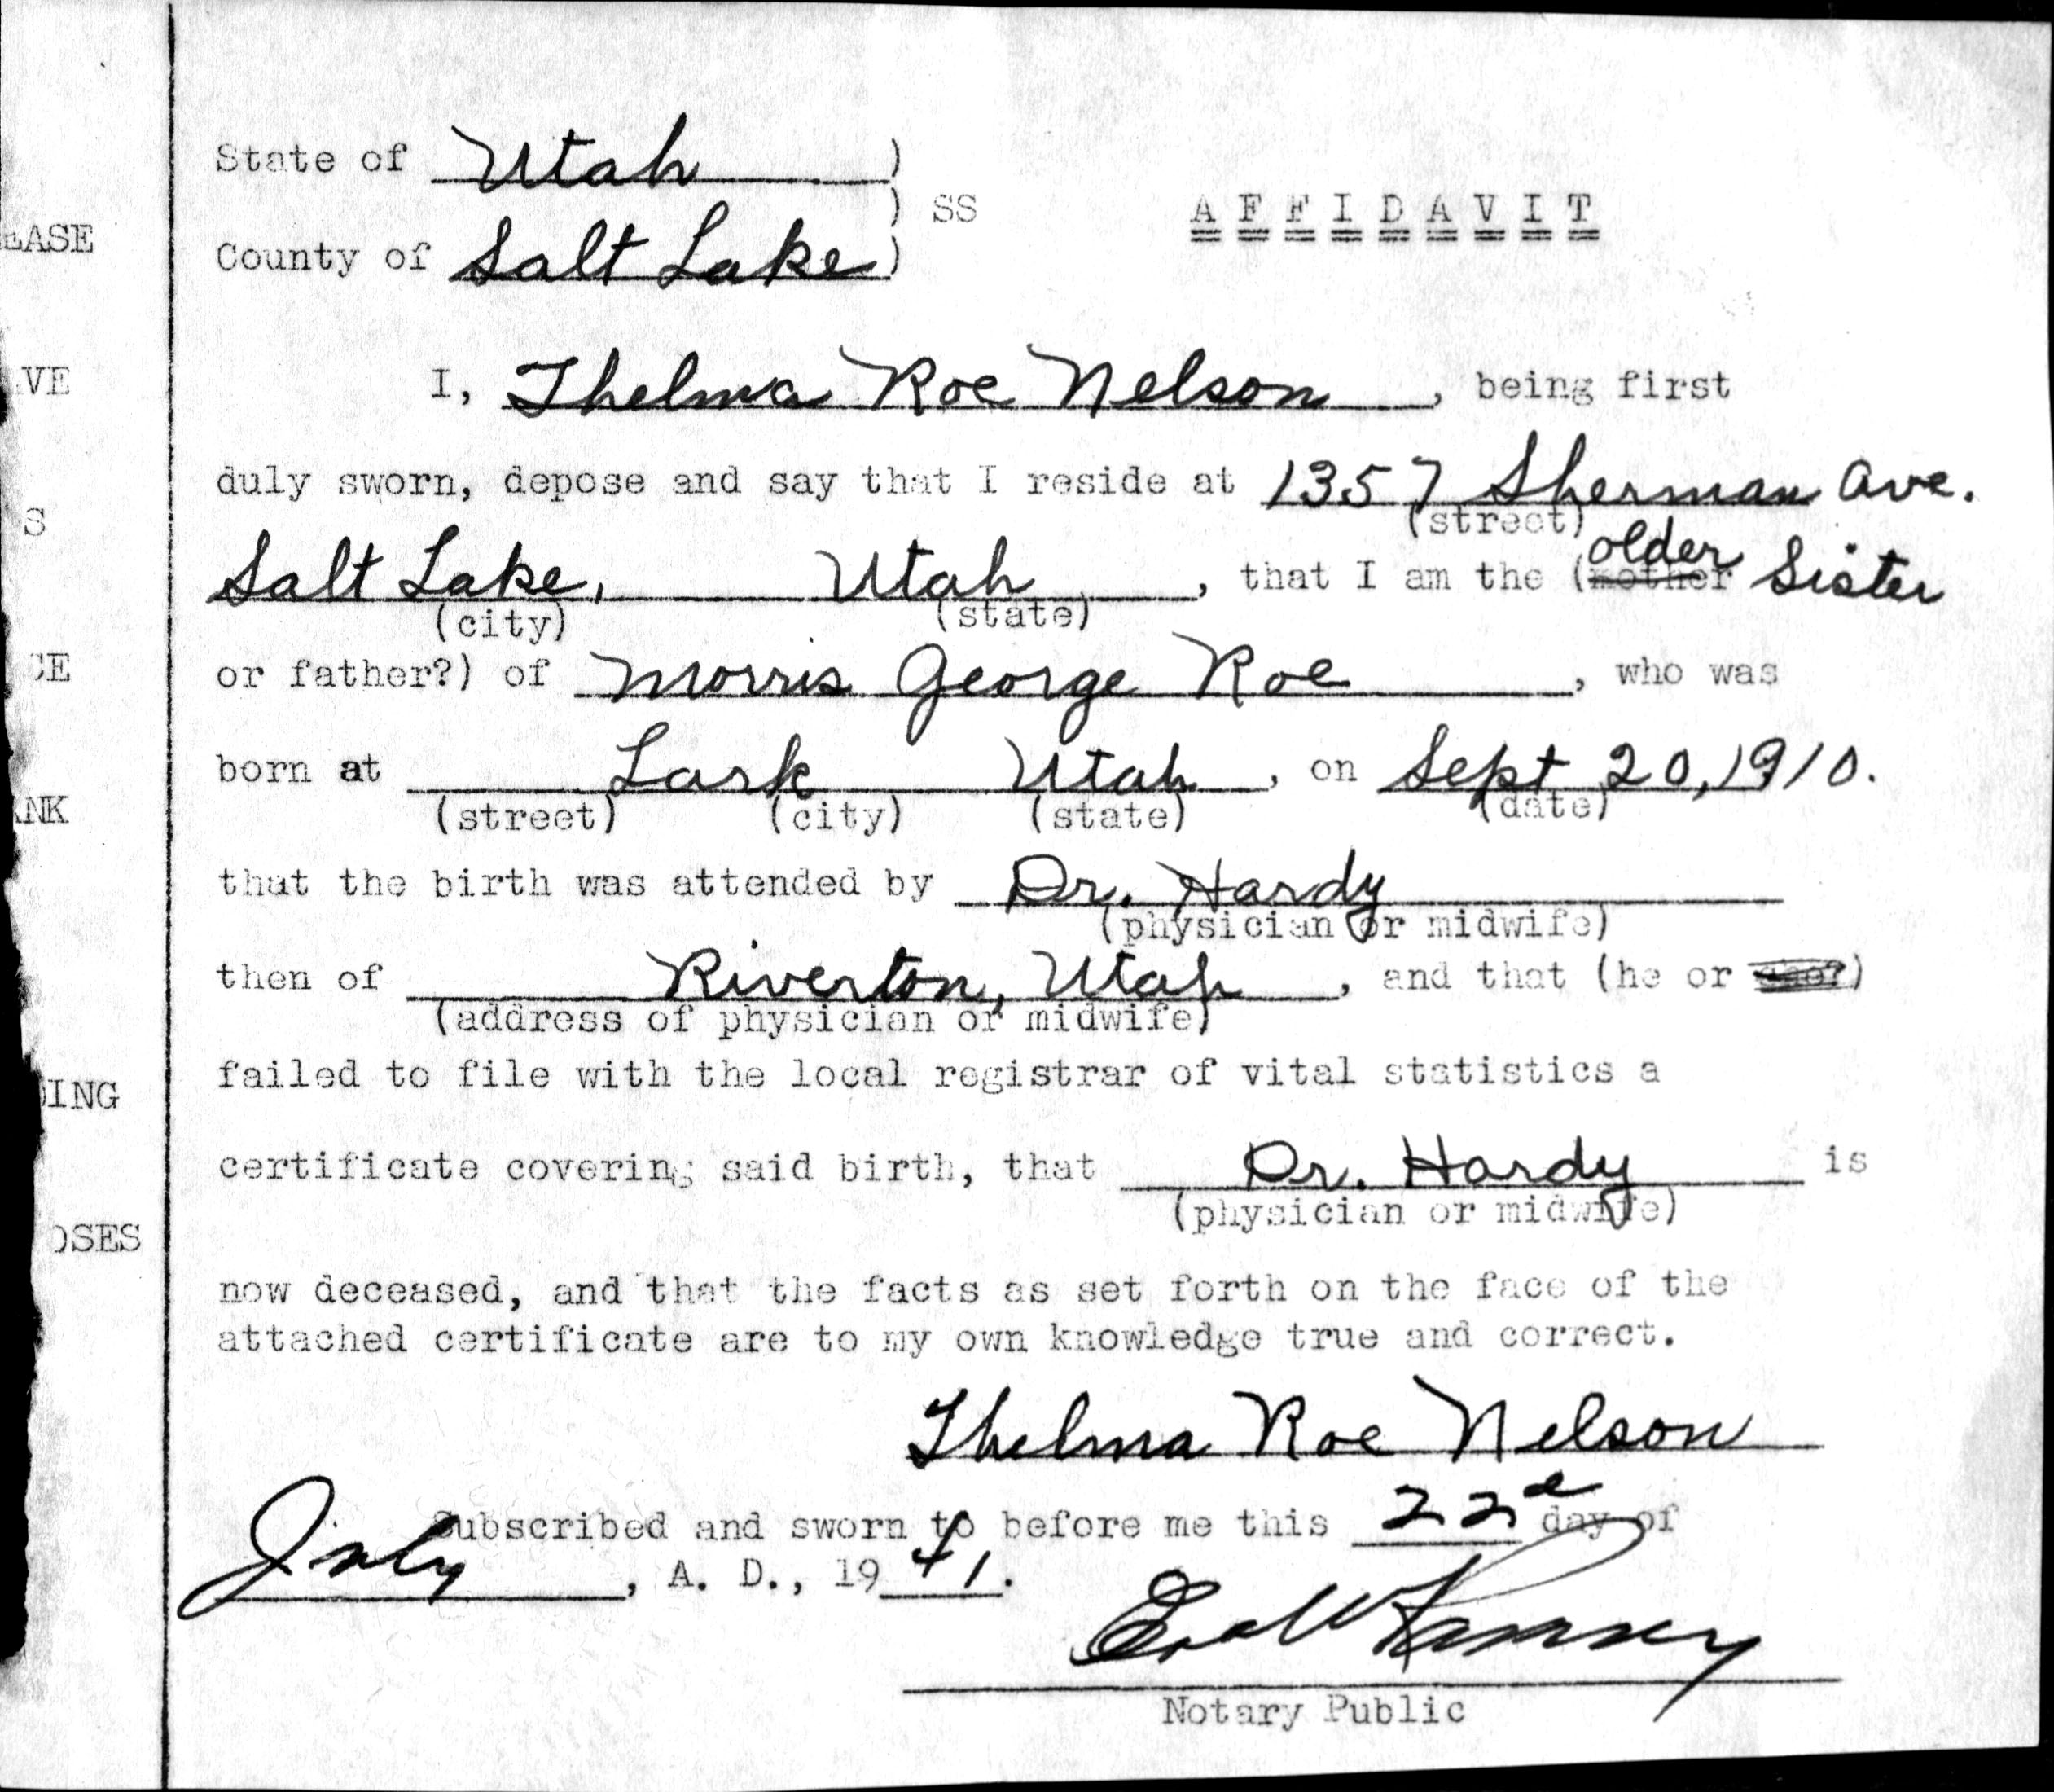 State of Utah )
) SS
A F F I D A V I T
County of Salt Lake )
I, Thelma Roe Nelson, being first
duly sworn, depose and say that I reside at 1357 Sherman Ave.
(street)
older
Salt Lake, Utah, that I am the (mother Sister
(city) (state)
or father?) of Morris George Roe, who was
born at Lark Utah, on Sept 20, 1910.
(street) (city) (state) (date)
that the birth was attended by Dr. Hardy
(physician or midwife)
then of Riverton, Utah, and that (he or she?)
(address of physician or midwife)
failed to file with the local registrar of vital statistics a
certificate covering said birth, that Dr. Hardy is
(physician or midwife)
now deceased, and that the facts as set forth on the face of the
attached certificate are to my own knowledge true and correct.
Thelma Roe Nelson
Subscribed and sworn to before me this 22d day of
July, A. D., 1941.
Notary Public
EASE
VE
S
CE
ANK
ING
OSES